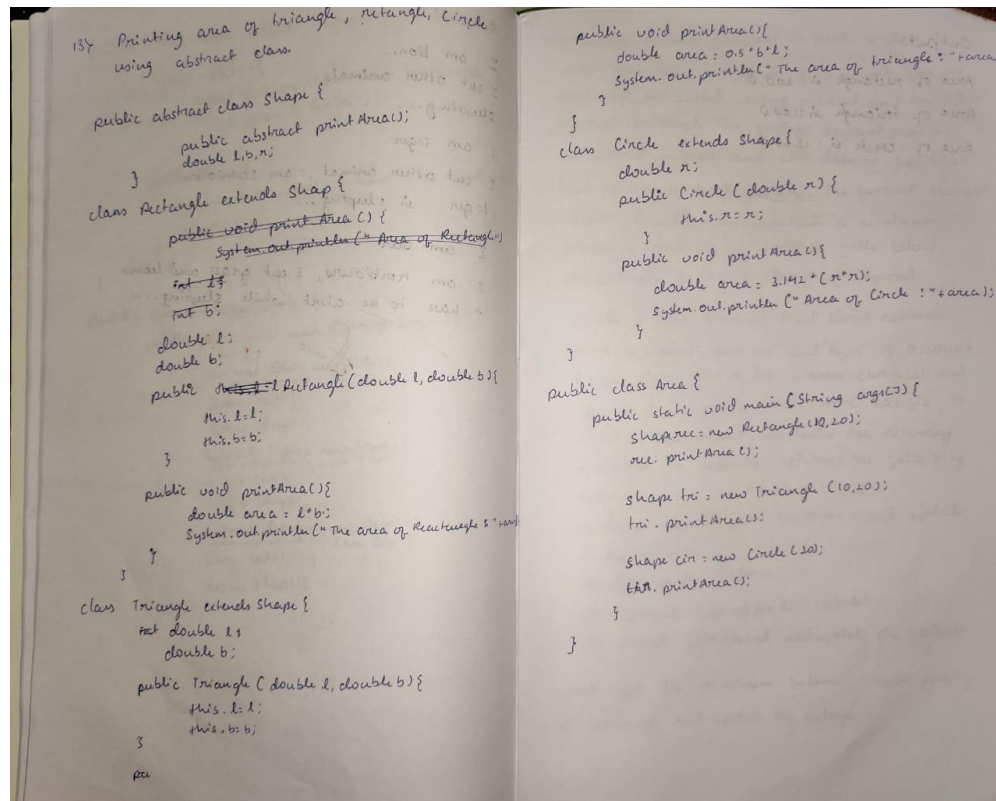 13) Printing area of triangle, retangle, Circle
using abstract class.
public abstract class Shape {
public abstract printArea();
double l,b,r;
}
class Rectangle extends Shap {
public void print Area () {
System.out.println(" Area of Rectangle")
int l;
int b;
double l;
double b;
public Rectangle(double l, double b){
this.l=l;
this.b=b;
}
public void printArea(){
double area = l*b;
System.out.println(" The area of Reactenegle : "+area)
}
}
class Triangle extends Shape {
double l;
double b;
public Triangle ( double l, double b){
this.l=l;
this.b=b;
}
pu
public void printArea(){
double area = 0.5*b*l;
System.out.println(" The area of triangle : "+area
}
}
class Circle extends Shape{
double r;
public Circle ( double r) {
this.r=r;
}
public void printArea(){
double area = 3.142*(r*r);
System.out.println (" Area of Circle : "+area);
}
}
public class Area {
public static void main (String args[]) {
shape rec = new Rectangle(10,20);
rec. printArea();
shape tri = new Triangle (10,20);
tri. printArea();
shape cir = new Circle (20);
printArea();
}
}